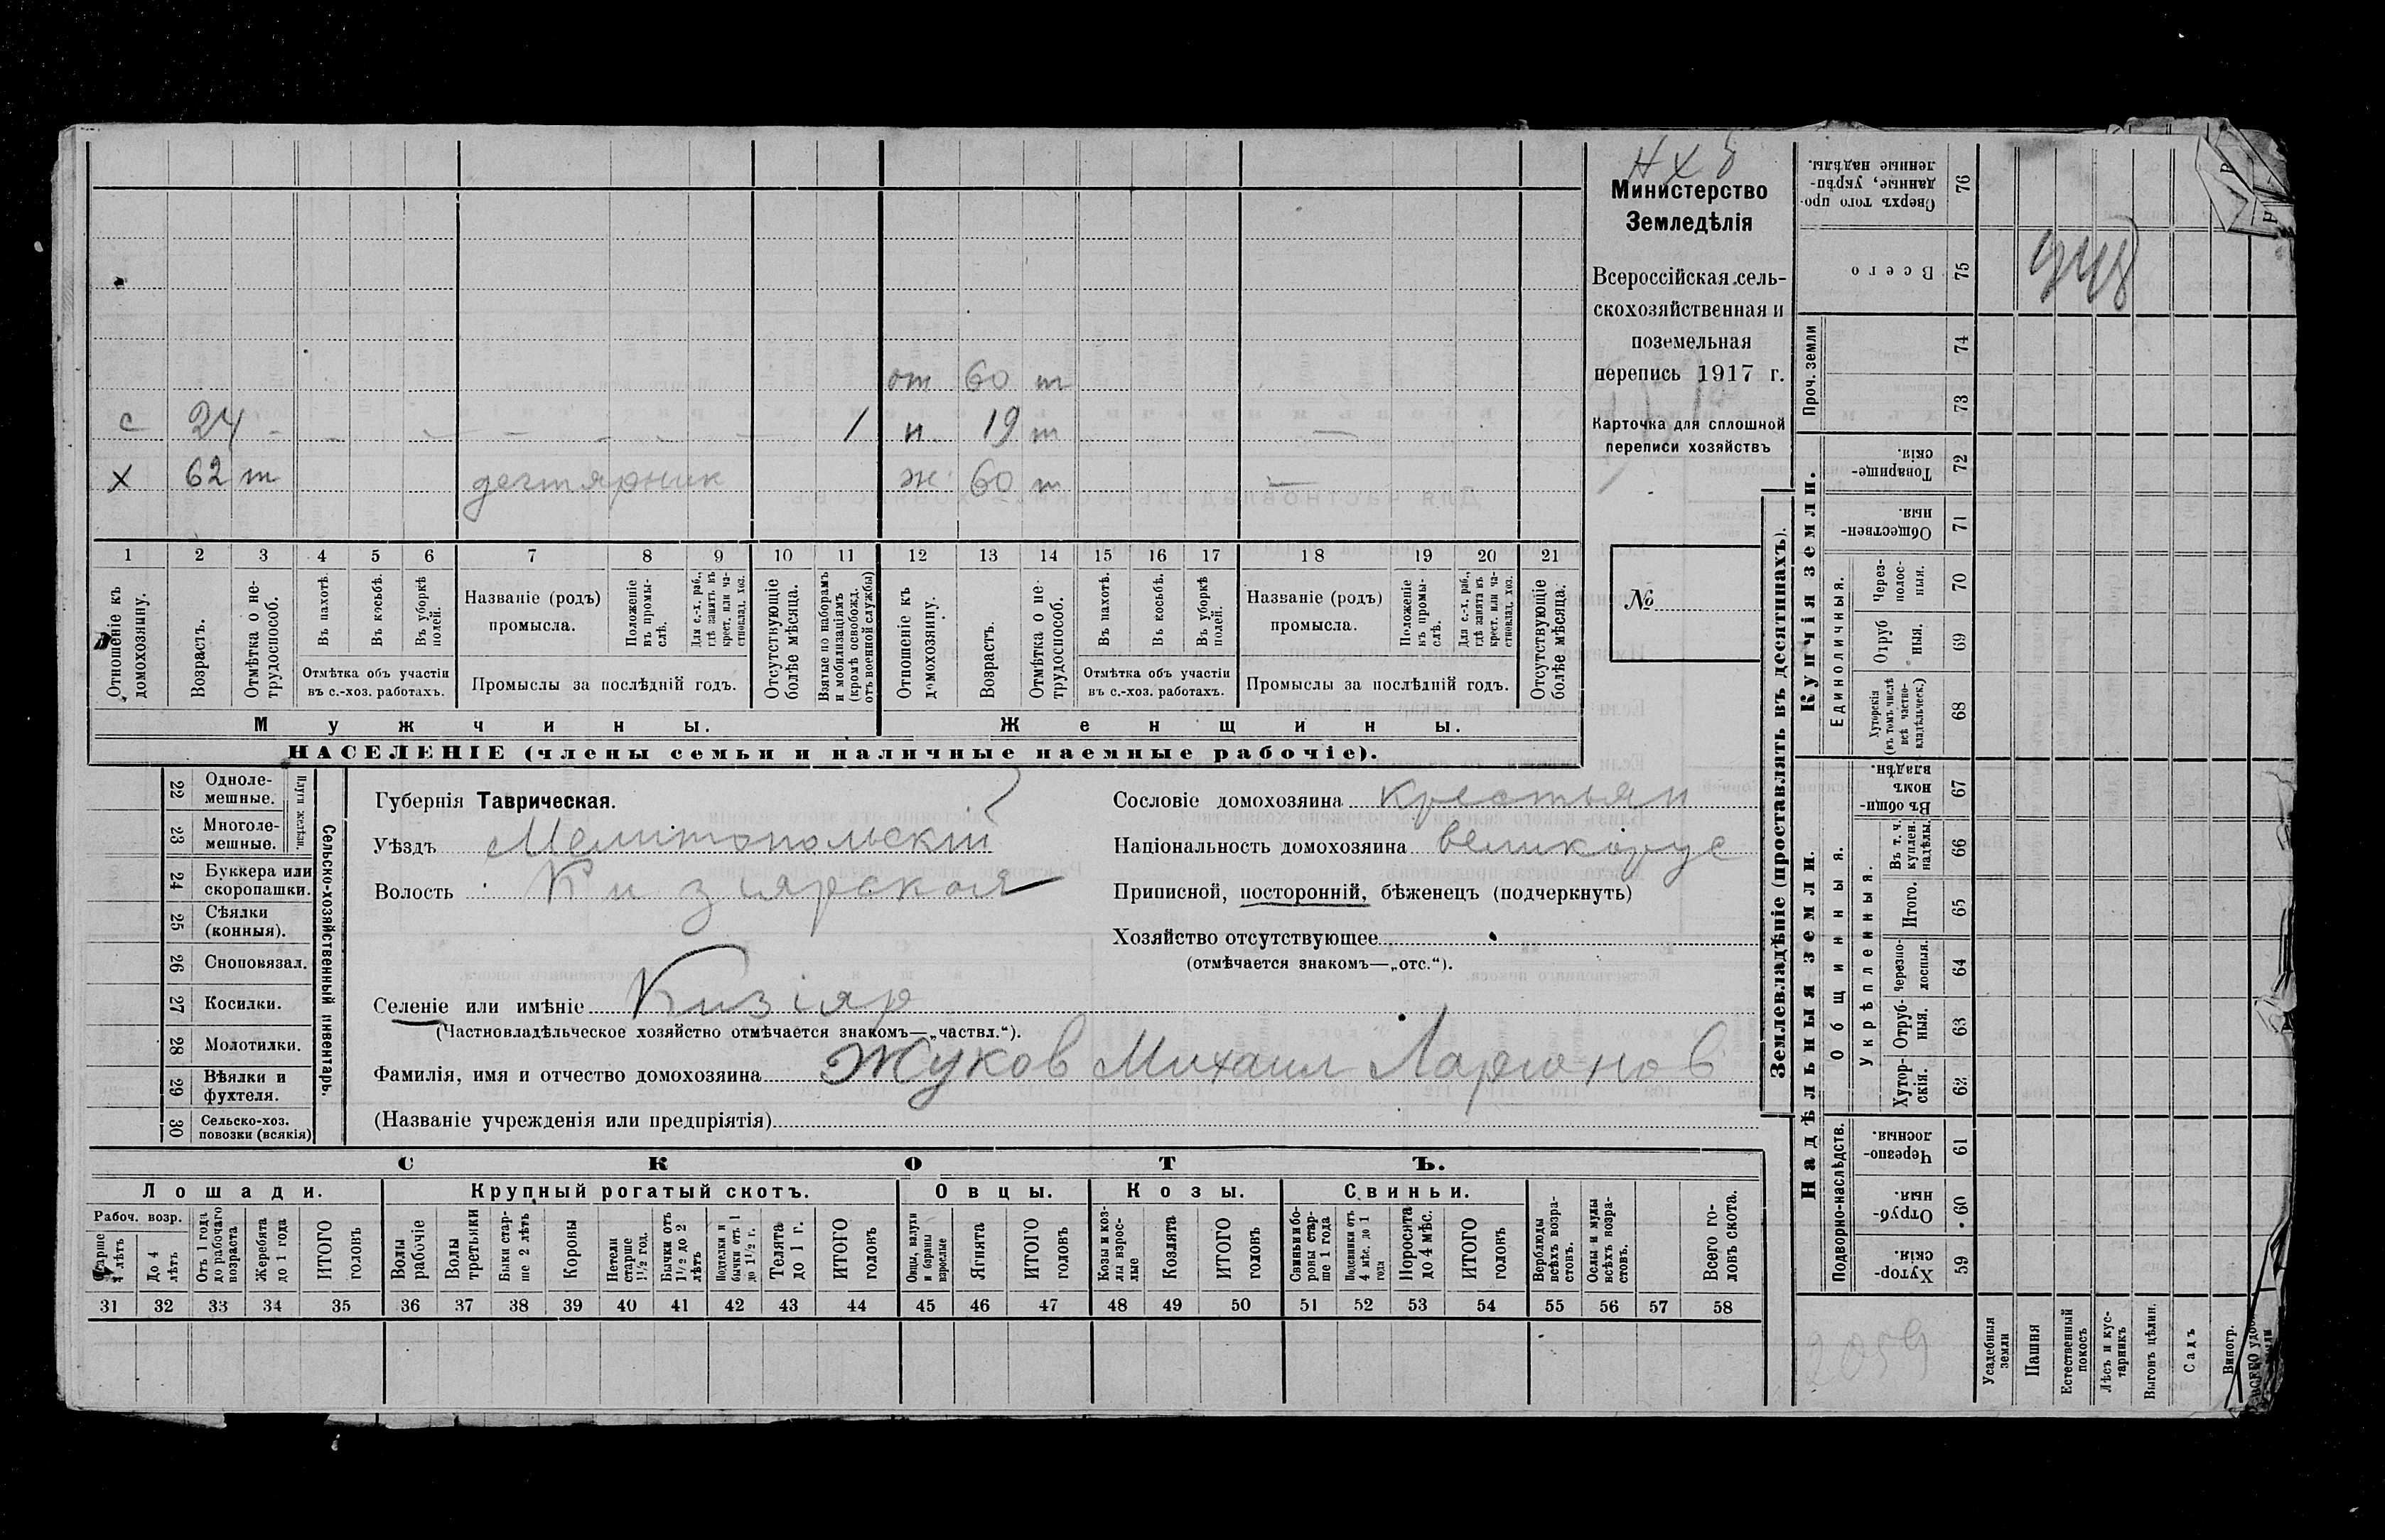 Н Х б
Министерство
Земледѣлія
Всероссійская сель-
скохозяйственная и
поземельная
перепись 1917 г.
Карточка для сплошной
переписи хозяйствъ
№
от 60 т
с 24 - - - - - - - 1 н 19 т —
х 62 т дегтярник ж 60 т —
1 2 3 4 5 6 7 8 9 10 11 12 13 14 15 16 17 18 19 20 21
Отношеніе къ домохозяину.
Возрастъ.
Отмѣтка о не-
трудоспособ.
Въ пахотѣ.
Въ косьбѣ.
Въ уборкѣ
полей.
Отмѣтка объ участіи
въ с.-хоз. работахъ.
Названіе (родъ)
промысла.
Положеніе
въ промы-
слѣ.
Для с.-х. раб.,
гдѣ занятъ въ
крест. или ча-
стновлад. хоз.
Промыслы за послѣдній годъ.
Отсутствующіе
болѣе мѣсяца.
Взятые по наборамъ
и мобилизаціямъ
(кромѣ освобожд.
отъ военной службы)
Отношеніе къ
домохозяину.
Возрастъ.
Отмѣтка о не-
трудоспособ.
Въ пахотѣ.
Въ косьбѣ.
Въ уборкѣ
полей.
Отмѣтка объ участіи
въ с.-хоз. работахъ.
Названіе (родъ)
промысла.
Положеніе
въ промы-
слѣ.
Для с.-х. раб.,
гдѣ занята въ
крест. или ча-
стновлад. хоз.
Промыслы за послѣдній годъ.
Отсутствующіе
болѣе мѣсяца.
Мужчины.
Женщины.
НАСЕЛЕНІЕ (члены семьи и наличные наемные рабочіе).
22 Одноле-
мешные.
23 Многоле-
мешные.
Плуги желѣзн.
24 Буккера или
скоропашки.
25 Сѣялки
(конныя).
26 Сноповязал.
27 Косилки.
28 Молотилки.
29 Вѣялки и
фухтеля.
30 Сельско-хоз.
повозки (всякія)
Сельско-хозяйственный инвентарь.
Губернія Таврическая.
Уѣздъ Мелитопольскій
Волость Кизіярская
Селеніе или имѣніе Кизіяр
(Частновладѣльческое хозяйство отмѣчается знакомъ—„частвл.“).
Фамилія, имя и отчество домохозяина Жуков Михаил Ларионов
(Названіе учрежденія или предпріятія)
Сословіе домохозяина крестьян
Національность домохозяина великорус
Приписной, посторонній, бѣженецъ (подчеркнуть)
Хозяйство отсутствующее
(отмѣчается знакомъ—„отс.“).
СКОТЪ.
Лошади.
Рабоч. возр.
Старше
4 лѣтъ
До 4
лѣтъ
Отъ 1 года
до рабочаго
возраста
Жеребята
до 1 года
ИТОГО
головъ
Крупный рогатый скотъ.
Волы
рабочіе
Волы
третьяки
Быки стар-
ше 2 лѣтъ
Коровы
Нетели
старше
1½ год.
Бычки отъ
1½ до 2
лѣтъ
Подтелки и
бычки отъ 1
до 1½ г.
Телята
до 1 г.
ИТОГО
головъ
Овцы.
Овцы, валухи
и бараны
взрослые
Ягнята
ИТОГО
головъ
Козы.
Козы и коз-
лы взрос-
лые
Козлята
ИТОГО
головъ
Свиньи.
Свиньи и бо-
ровы стар-
ше 1 года
Подсвинки отъ
4 мѣс. до 1
года
Поросята
до 4 мѣс.
ИТОГО
головъ
Верблюды
всѣхъ возра-
стовъ.
Ослы и мулы
всѣхъ возра-
стовъ.
Всего го-
ловъ скота.
31 32 33 34 35 36 37 38 39 40 41 42 43 44 45 46 47 48 49 50 51 52 53 54 55 56 57 58
Землевладѣніе (проставлять въ десятинахъ).
Надѣльныя земли.
Подворно-наслѣдств.
Хутор-
скія. 59
Отруб-
ныя. 60
Черезпо-
лосныя. 61
Общинныя.
Укрѣпленныя.
Хутор-
скія. 62
Отруб-
ныя. 63
Черезпо-
лосныя. 64
Итого. 65
Въ т. ч.
куплен.
надѣлы. 66
Въ общи-
номъ
владѣн. 67
Купчія земли.
Единоличныя.
Хуторскія
(въ томъ числѣ
всѣ частно-
владѣльческ.) 68
Отруб
ныя. 69
Через-
полос-
ныя. 70
Обществен-
ныя. 71
Товарище-
скія. 72
Проч. земли
73
74
Всего 75
Сверхъ того про-
данные, укрѣп-
ленные надѣлы. 76
948
2059
Усадебныя
земли
Пашня
Естественный
покосъ
Лѣсъ и кус-
тарникъ
Выгонъ цѣлин.
Садъ
Виногр.